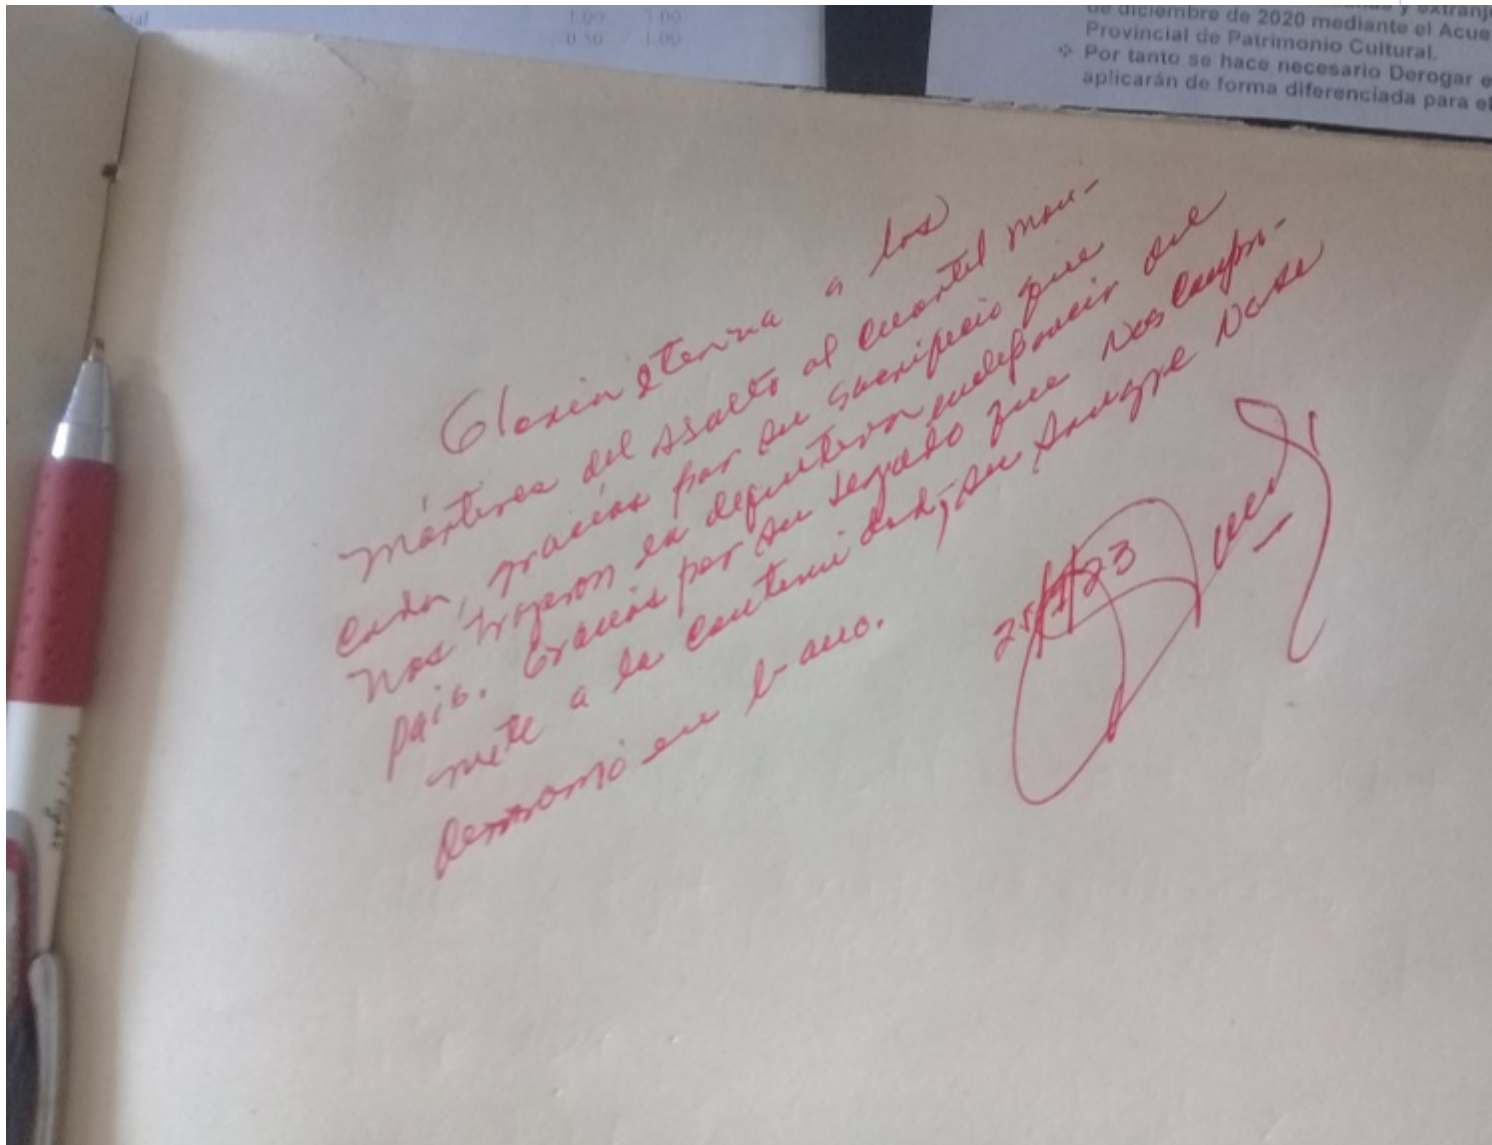 1.00 3.00
0.50 1.00
y extranj
de diciembre de 2020 mediante el Acue
Provincial de Patrimonio Cultural.
❖ Por tanto se hace necesario Derogar e
aplicarán de forma diferenciada para el
Gloria eterna a los
mártires del asalto al cuartel mon-
cada, gracias por su sacrificio que
nos trajeron la definitiva independencia del
país. Gracias por su legado que nos compro-
mete a la continuidad, su sangre no se
derramó en bano.